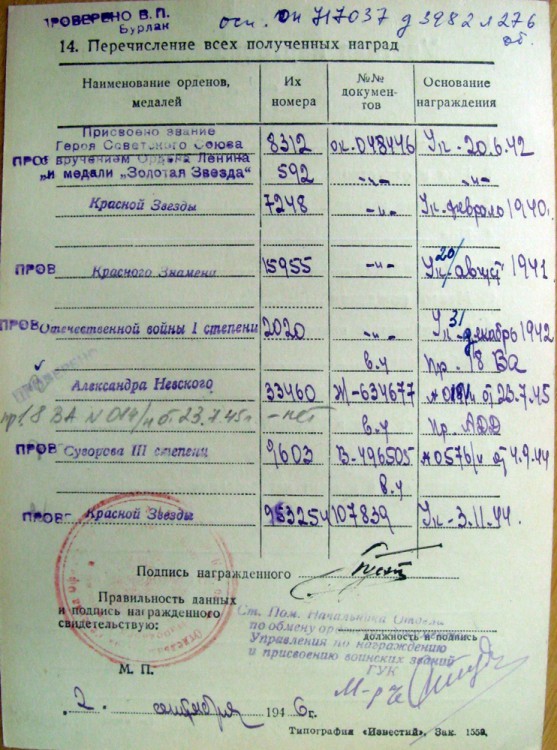 ПРОВЕРЕНО В. П.
Бурлак
осн. ОК 717037 д 3982 л 276
об.
14. Перечисление всех полученных наград
Наименование орденов, медалей Их номера №№ докумен-тов Основание награждения
Присвоено звание
Героя Советского Союза 8312 ок.048446 Ук-20.6.42
ПРОВ с вручением Ордена Ленина
„и медали „Золотая Звезда" 592 -„- -„-
Красной Звезды 7248 -„- Ук-февраль 1940г.
20/
ПРОВ Красного Знамени 15955 -и- Ук/август 1941
31
ПРОВ Отечественной войны I степени 2020 -и- Ук-декабрь 1942
в.и Пр. 18 ВА
Александра Невского 33460 Ж-634677 №019/н от 23.7.45
пр.18 ВА N 019/н от 23.7.45г -нет
в.и Пр. АДД
ПРОВ Суворова III степени 9603 В-496505 №0576/н от 4.9.44
в.и
ПРОВ Красной Звезды 953254 107839 Ук-3.11.44.
Подпись награжденного
Правильность данных
и подпись награжденного
свидетельствую:
Ст. Пом. Начальника Отдела
по обмену
должность и подпись
Управления по награждению
и присвоению воинских званий
ГУК
М. П.
М-р
„2„ сентября 1946г.
Типография «Известий». Зак. 1559.